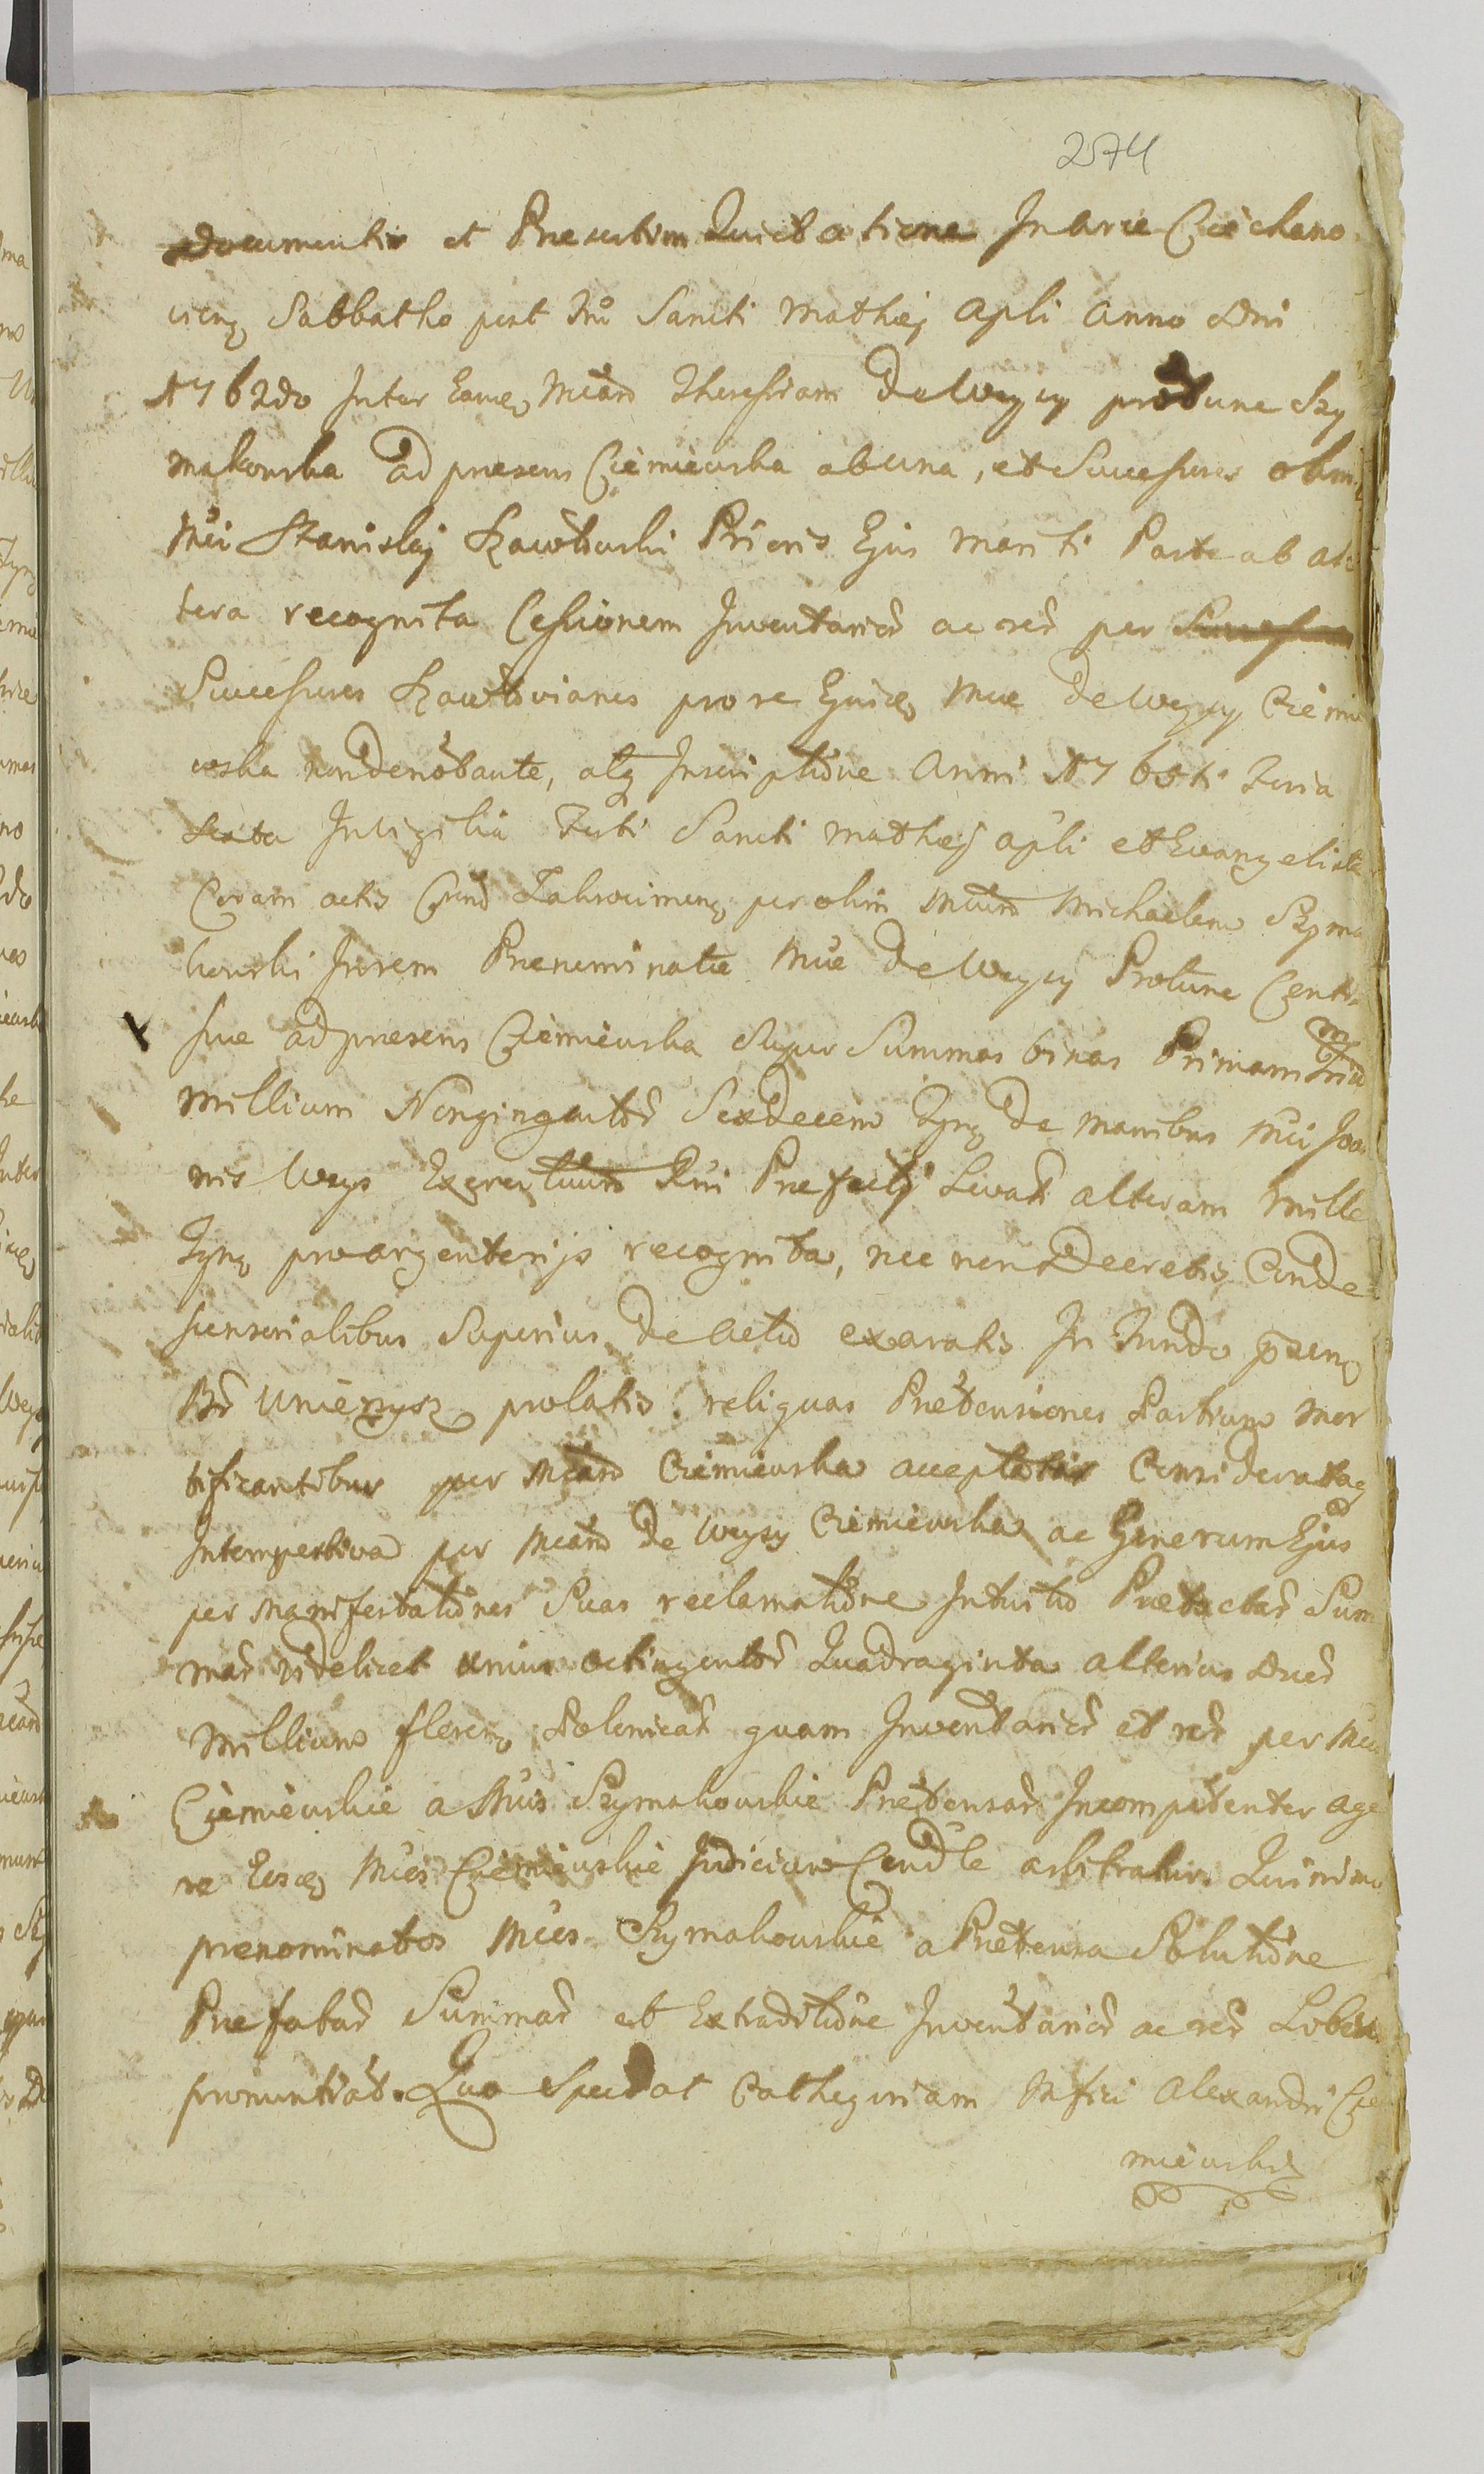 2574
Documentis et Praesertim Quietatione In Arce Ciechano
vieng Sabbatho post Fm Sancti Mathaej Apli Anno Dni
1762do Inter Eamq Mcam Theresiam de Weysy protunc Szy
makowska ad praesens Ciemiewska ab una, et Successores olim
Mci Stanislaj Szawłowski Prioris Ejus Mariti Parte ab al
tera recognita Cessionem Inventarior ac rer per
Successores Szawłovianos pro re Ejusdq Mcae de Weysy Ciemie
wska non denotante, atq Inscriptione Anni 1765ti Feria
Sexta In Vigilia Festi Sancti Mathaej Apli et Evangeliste
Coram actis Zakrocimeng per olim Mcum Michaelem Szyma
kowski In rem Praenominatae Mcae de Weysy Protunc Conth
sue ad praesens Ciemiewska Super Summas binas Primam
Millium Nongingentor Sexdecem Fgng de manibus Mci Joan
nis Weys Exercituum Praefectj Levat alteram Mille
Fgng pro argenterijs recognita, nec non Decretis Conde
scensorialibus Superius de Actu exaratis In Fundo pseng
Br Unierzysz prolatis. reliquas Praetensiones Partium mor
tificantibus per Mcam Ciemiewska acceptatis Considerataq
Intempestiva per Mcam de Weysy Ciemiewska ac Generum Ejus
per Manifestationes Suas reclamatione Intuitu Praetactar Sum
mar videlicet unius octingentor Quadraginta alterius Duor
Millium floreng Polonicar quam Inventarior et rer per Mcos
Ciemiewskie a Mcis Szymakowskie Praetensar Incompetenter age
re Eosq Mcos Ciemiewskie Judicium Condle arbitratur. Quinimo
prenominatos Mcos Szymakowskie a Praetensa Solutione
Praefatar Summar et Extraditione Inventarior ac rer Liberos
pronuntiat. Quo Spectat Cathegoriam Mfici Alexandri Cie
miewski